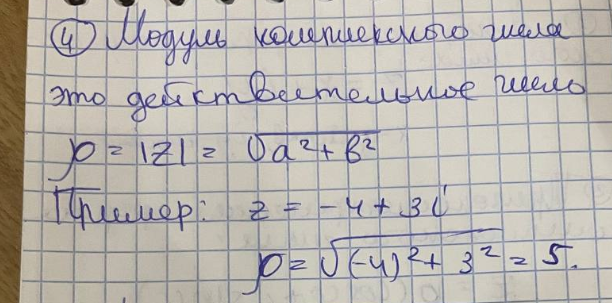 ④ Модуль комплексного числа
это действительное число
ρ = |z| = √a² + b²
Пример: z = -4 + 3i
ρ = √(-4)² + 3² = 5.